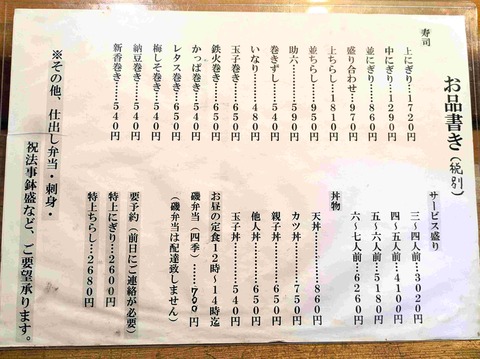 お品書き(税別)
寿司
上にぎり……1720円
中にぎり……1290円
並にぎり……860円
盛り合わせ……970円
上ちらし……1810円
並ちらし……950円
助六……590円
巻きずし……540円
いなり……480円
玉子巻き……650円
鉄火巻き……650円
かっぱ巻き……540円
レタス巻き……650円
梅しそ巻き……540円
納豆巻き……540円
新香巻き……540円
サービス盛り
三〜四人前…3020円
四〜五人前…4100円
五〜六人前…5180円
六〜七人前…6260円
丼物
天丼……860円
カツ丼……750円
親子丼……650円
他人丼……650円
玉子丼……540円
お昼の定食12時〜14時迄
磯弁当(四季)……700円
(磯弁当は配達致しません)
要予約(前日にご連絡が必要)
特上にぎり…2680円
特上ちらし…2680円
※その他、仕出し弁当・刺身・
祝法事鉢盛など、ご要望承ります。